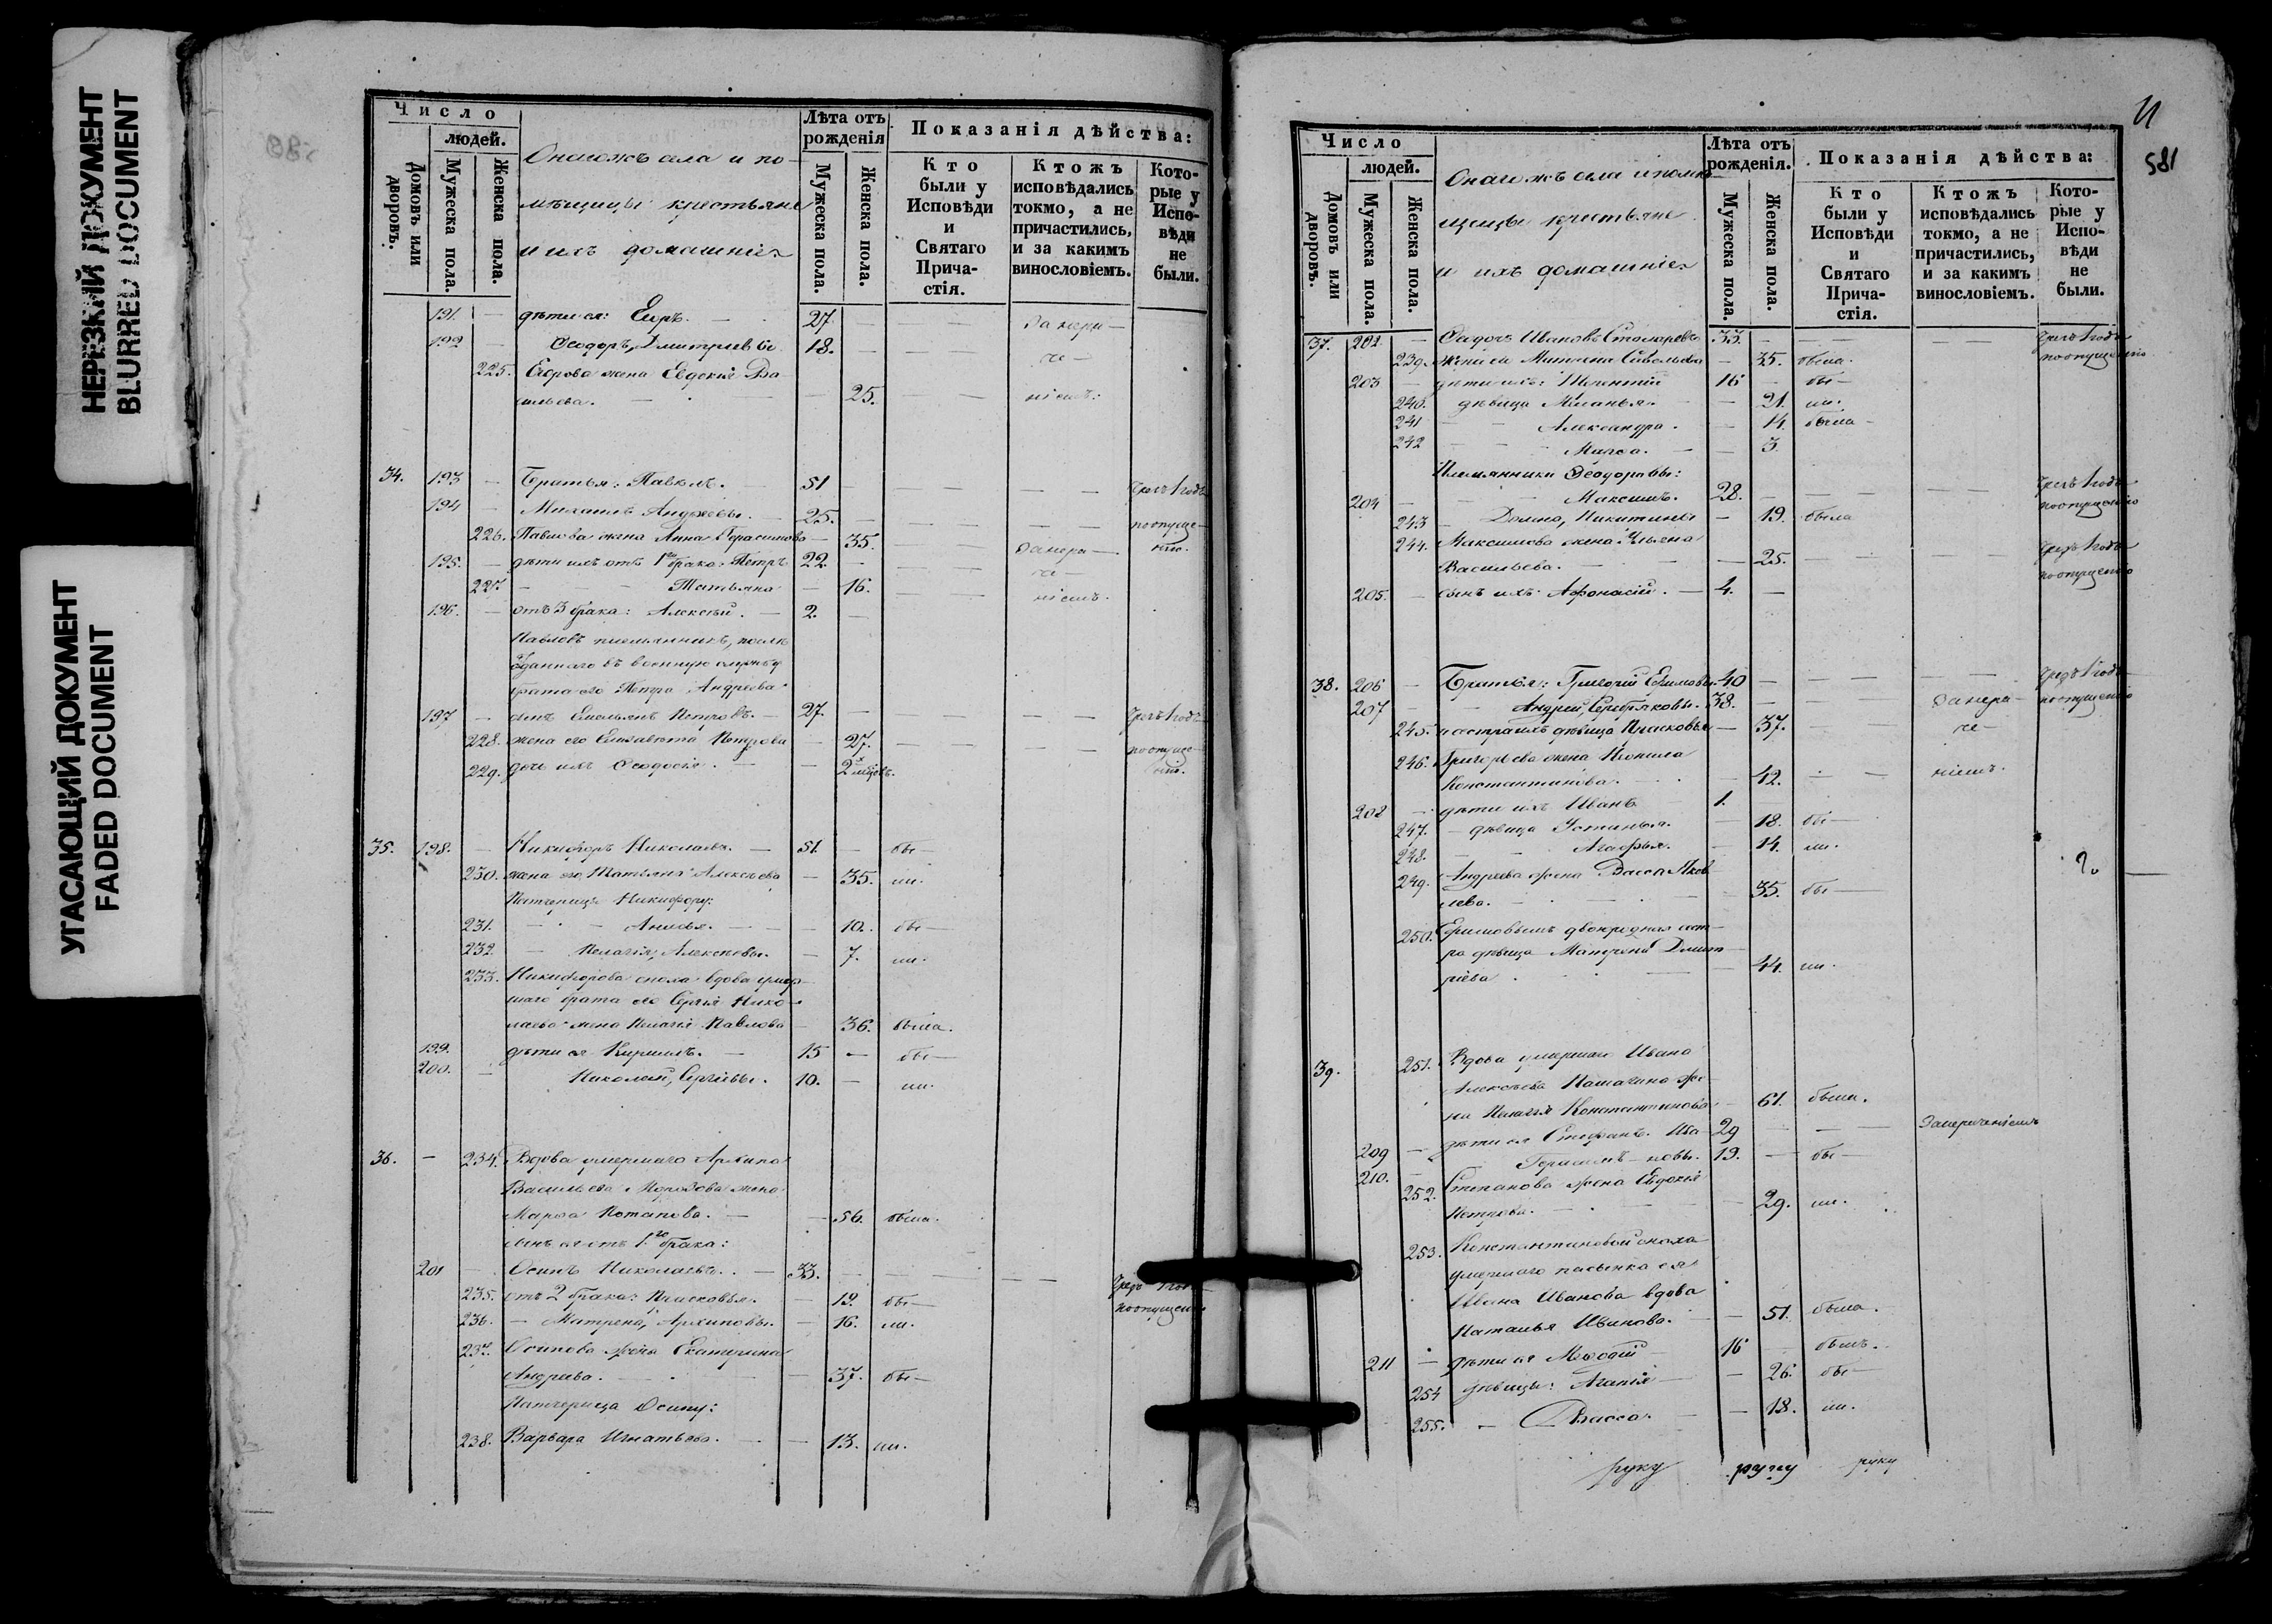 НЕРЕЗКИЙ ДОКУМЕНТ
BLURRED DOCUMENT
УГАСАЮЩИЙ ДОКУМЕНТ
FADED DOCUMENT
Число
людей.
Домовъ или дворовъ.
Мужеска пола.
Женска пола.
Онагожъ села и по-
мѣщицы крестьяне
и ихъ домашнiе
Лѣта отъ рожденiя
Мужеска пола.
Женска пола.
Показанiя дѣйства:
Кто были у Исповѣди и Святаго Прича-стiя.
Ктожъ исповѣдались токмо, а не причастились, и за какимъ винословiемъ.
Кото-рые у Испо-вѣди не были.
191. — дѣти ея: Егоръ. — 27. — — — за нере-
192 — Ѳеодоръ, Дмитрiевы 18. — — — че-
225. Егорова жена Евдокiя Ва-
сильева. — — 25. — — нiемъ.
34. 193 — Братья: Павелъ. — 51 — — — чрезъ 1 годъ
194 — Михаилъ Андреевы. — 25. — — — по опуще-
226. Павлова жена Анна Герасимова — 35. — за нере- нiю.
195. — дѣти ихъ отъ 1го брака: Петръ 22. — — че-
227. — Татьяна — 16. — нiемъ.
196. — отъ 3 брака: Алексѣй. — 2. —
Павловъ племянникъ,
отданнаго въ военную службу
брата его Петра Андреева
197 — сынъ Емельянъ Петровъ. — 27. — — — чрезъ 1 годъ
228. жена его Елизавета Петрова — 27. — — — по опуще-
229. дочь ихъ Ѳеодосiя. — — 2х мѣсяц. нiю.
35. 198. — Никифоръ Николаевъ. — 51. — бы-
230. жена его Татьяна Алексѣева — 35. ли.
Патчерицы Никифору:
231. — Анисья. — — 10. бы-
232. — Пелагiя, Алексѣевы. — 7. ли.
233. Никифорова сноха вдова умер-
шаго брата его Сергѣя Нико-
лаева жена Пелагiя Павлова — 36. была.
199. дѣти ея Кириллъ. — 15 — бы-
200. — Николай, Сергѣевы. 10. — ли.
36. — 234. Вдова умершаго Архипа
Васильева Морозова жена
Марѳа Потапова. — — 56. была.
сынъ ея отъ 1го брака:
201 — Осипъ Николаевъ. — 33. — — — чрезъ 1 годъ
235. отъ 2 брака: Прасковья. — 19. бы- по опущенiю
236. — Матрена, Архиповы. — 16. ли.
237. Осипова жена Екатерина
Андреева. — — 37. бы-
Патчерица Осипу:
238. Варвара Игнатьева. — — 13. ли.
11
581
Число
людей.
Домовъ или дворовъ.
Мужеска пола.
Женска пола.
Онагожъ села и помѣ-
щицы крестьяне
и ихъ домашнiе
Лѣта отъ рожденiя.
Мужеска пола.
Женска пола.
Показанiя дѣйства:
Кто были у Исповѣди и Святаго Прича-стiя.
Ктожъ исповѣдались токмо, а не причастились, и за какимъ винословiемъ.
Кото-рые у Испо-вѣди не были.
37. 202. — Ивановъ Столяровъ 33. — — — чрезъ 1 годъ
239. жена его Савельева — 35. была. по опущенiю
203 — дѣти ихъ: 16 — бы-
240. дѣвица Меланья. — — 21. ли.
241 — Александра. — 14. была
242 — Марѳа. — 3
Племянники Ѳеодоровы:
204 — Максимъ. 28. — — — чрезъ 1 годъ
243 — Домна, Никитины — 19. была по опущенiю
244. Максимова жена Ульяна
Васильева. — — 25. — — чрезъ 1 годъ
205. — сынъ ихъ Аѳонасiй. — 4. — по опущенiю
38. 206 — Братья: Григорiй Ефимовы 40 — — — чрезъ 1 годъ
207 — Андрей, Серебряковы. 38. — — за нере- по опущенiю
245. и сестра ихъ дѣвица Прасковья — 37. — че-
246. Григорьева жена
Константинова. — 42. — нiемъ.
208 — дѣти ихъ Иванъ 1.
247. — дѣвица Устинья. — 18. бы-
248. — Агафья. — 14. ли.
249. Андреева жена Васса Яков-
лева. — — 35. бы-
250. Ефимовымъ двоюродная сест-
ра дѣвица Матрена Дмит-
рiева — 44. ли.
39. 251. Вдова умершаго Ивана
Алексѣева же-
на Пелагiя Константинова — 61. была.
209 — дѣти ея Стефанъ. Ива- 29 — — за нереченiемъ
210. Герасимъ — новы. 19. — бы-
252. Степанова жена Евдокiя
Петрова. — — 29. ли.
253. Константиновой сноха
умершаго пасынка ея
Ивана Иванова вдова
Наталья Иванова. — — 51. была.
211 — дѣти ея Меѳодiй — 16 — былъ.
254 дѣвицы: Агапiя — — 26. бы-
255. — Васса. — — 18. ли.
руку руку руку